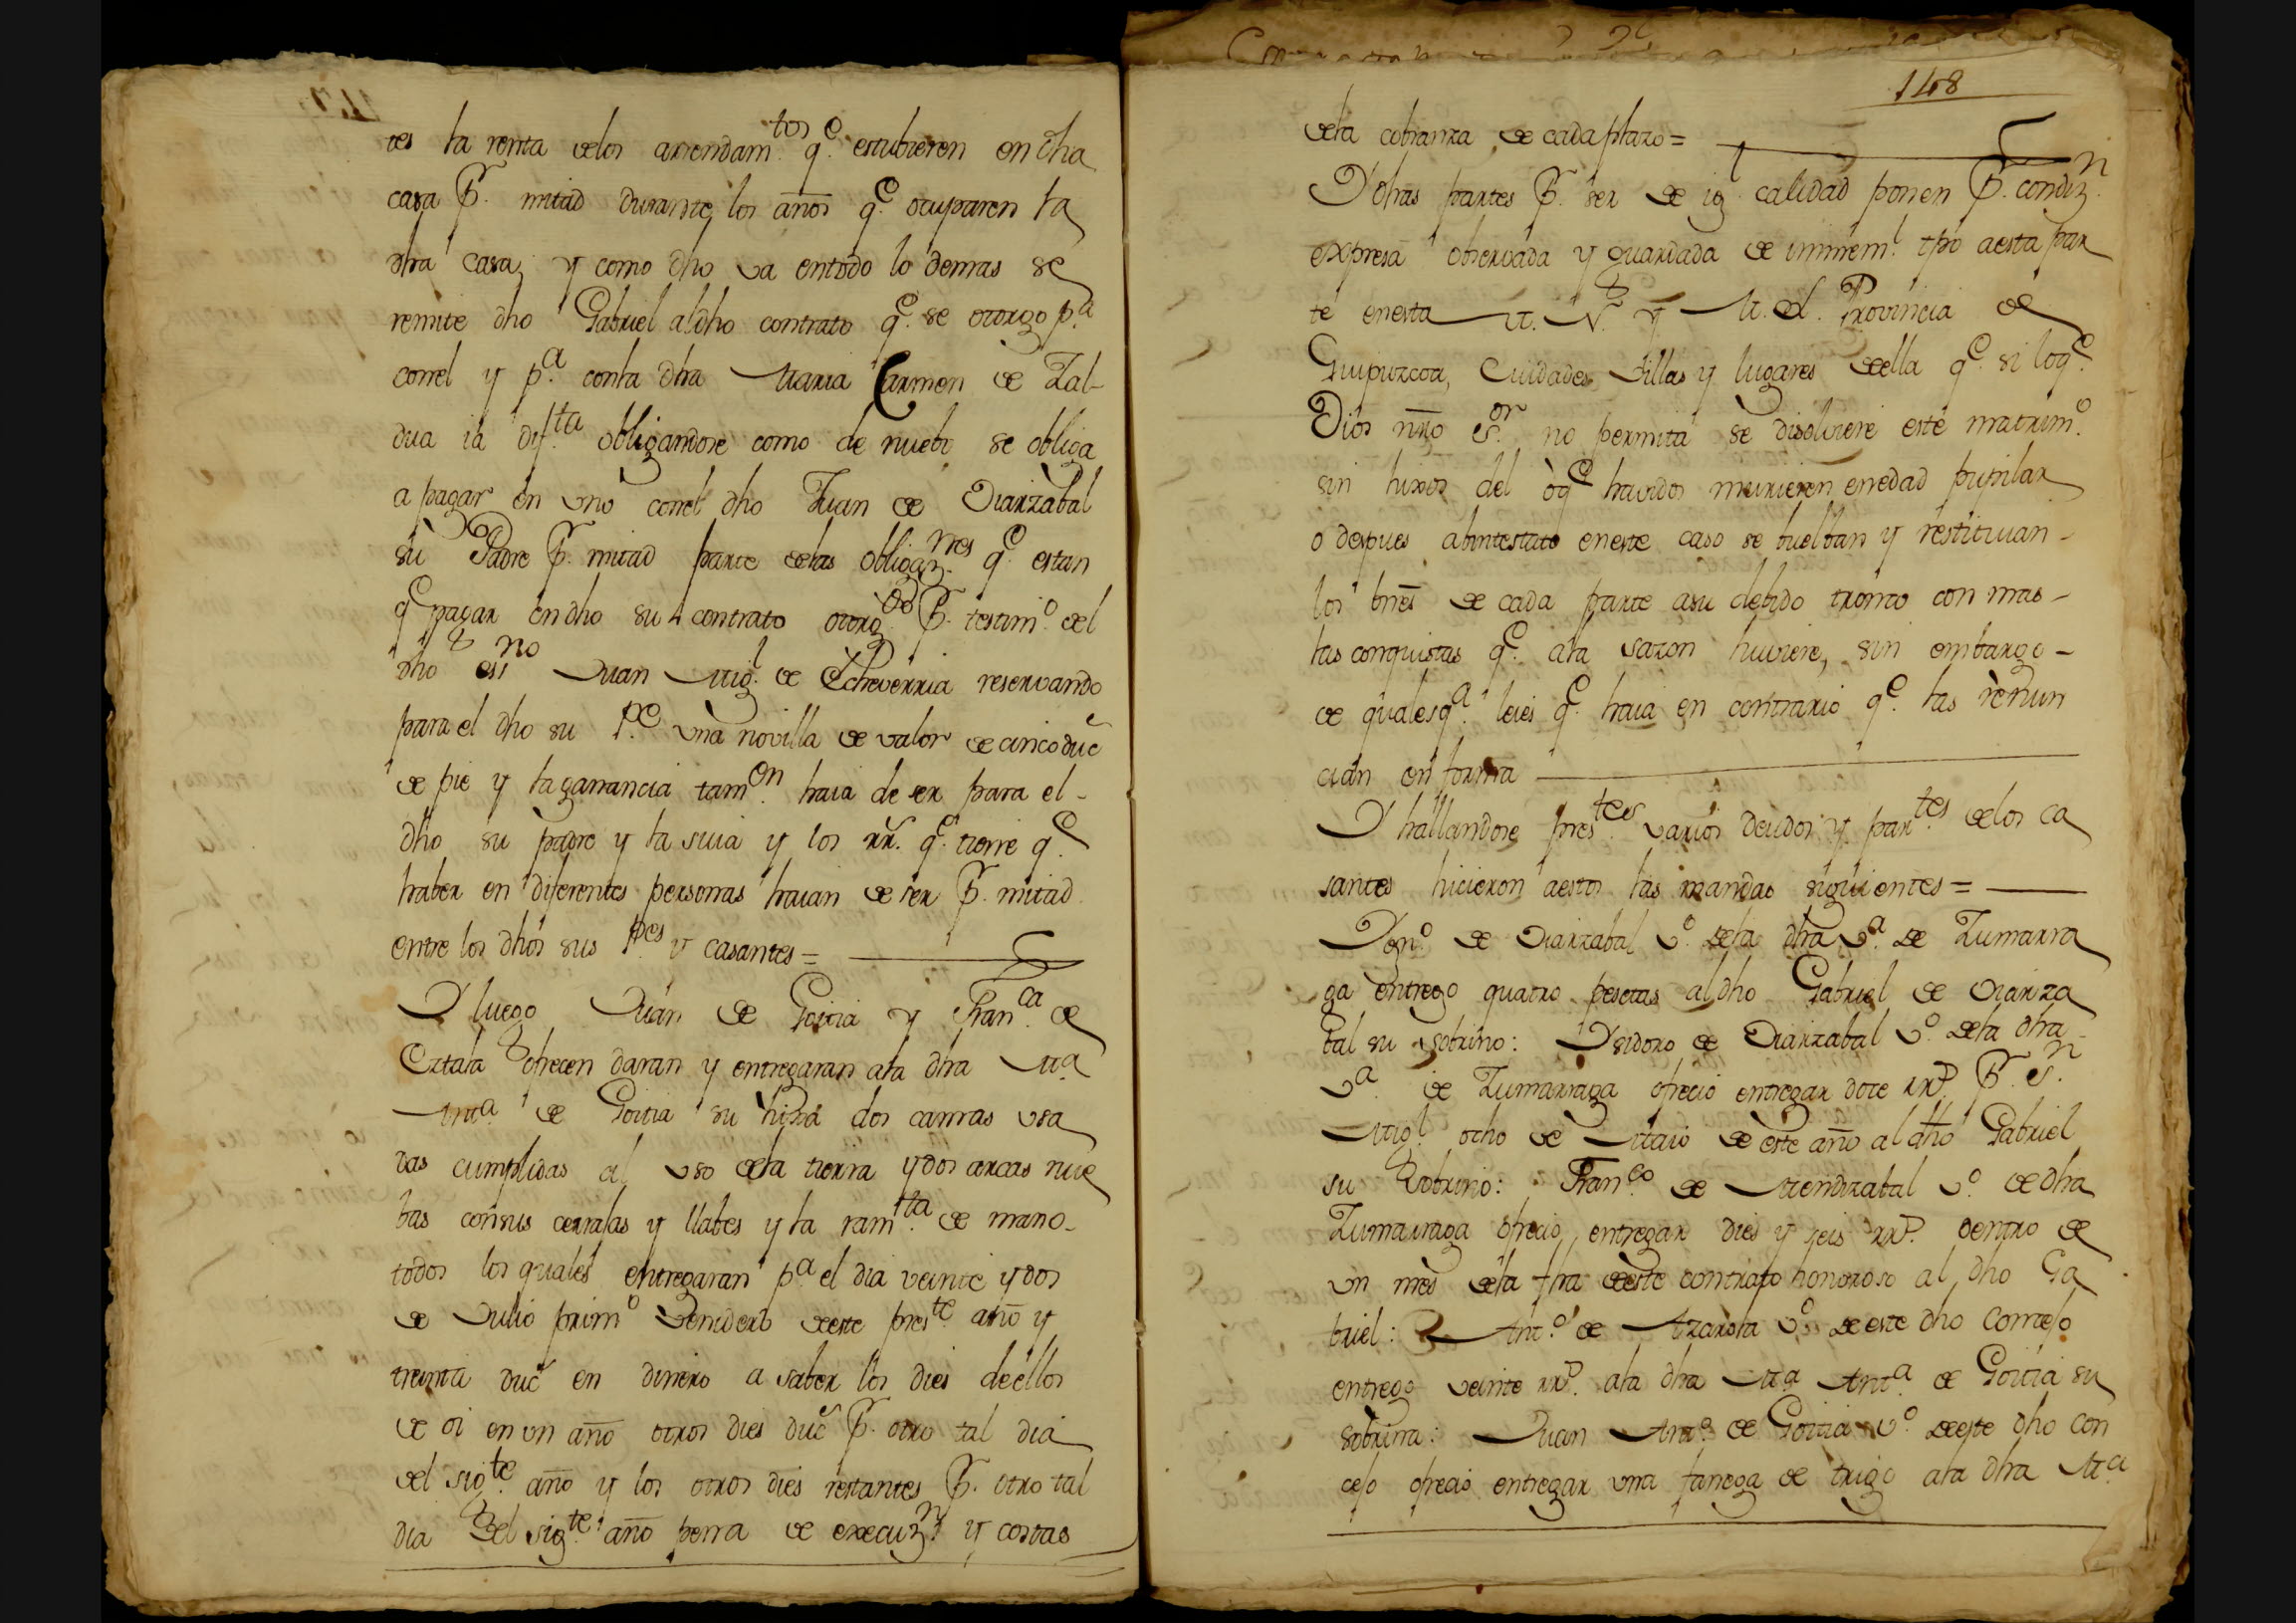 tes la renta delos arrendam.tos q.e estubieren en dha
casa P.r mitad durante los años q.e ocuparen la
dha casa, y como dho va entodo lo demas se
remite dho Gabriel aldho contrato q.e se otorgo p.a
conel y p.a conla dha Maria Carmen de Zal-
dua ia dif.ta obligandose como de nuebo se obliga
a pagar en uno conel dho Juan de Oiarzabal
su Padre P.r mitad parte delas obligaz.nes q.e estan
q.e pagar en dho su contrato otorg.do P.r testim.o del
dho ess.no Juan Mig.l de Echeverria reservando
para el dho su P.e una novilla de valor de cinco duc.s
de pie y la ganancia tam.on haia de ser para el-
dho su padre y la suia y los rr.s q.e tiene q.e
haber en diferentes personas haian de ser P.r mitad
entre los dhos sus P.es y casantes=
Y luego Juan de Goitia y Fran.ca de
Eztala ofrecen daran y entregaran ala dha M.a
Ant.a de Goitia su hixa dos camas usa
das cumplidas al uso dela tierra y dos arcas nue
bas consus cerrajas y llabes y la ram.ta de mano-
todos los quales entregaran p.a el dia veinte y dos
de Julio prim.o Venidero deeste pres.te año y
treinta duc.s en dinero a saber los dies deellos
de oi en un año otros dies duc.s P.r otro tal dia
del sig.te año y los otros dies restantes P.r otro tal
dia del sig.te año pena de execuz.n y costas
148
dela cobranza de cada plazo=
Y dhas partes P.r ser de ig.l calidad ponen P.r condiz.n
expresa observada y guardada de inmem.l tpo aesta par
te enesta M. N. y M. L. Provincia de
Guipuzcoa, Ciudades Villas y lugares deella q.e si loq.e
Dios nro S.or no permita se disolviere este matrim.o
sin hixos del o q.e havidos murieren enedad pupilar
o despues abintestato eneste caso se buelban y restituian-
los bnes de cada parte asu debido tronco con mas-
las conquistas q.e ala sazon huviere, sin embargo-
de qualesq.a leies q.e haia en contrario q.e las renun
cian en forma
Y hallandose pres.tes varios deudos y par.tes delos ca
santes hicieron aestos las mandas siguientes=
Ygn.o de Oiarzabal v.o dela dha v.a de Zumarra
ga entrego quatro pesetas aldho Gabriel de Oiarza
bal su sobrino: Ysidoro de Oiarzabal v.o dela dha
v.a de Zumarraga ofrecio entregar doce rr.s P.r S.n
Mig.l ocho de Maio de este año al dho Gabriel
su Sobrino: Fran.co de Mendizabal v.o de dha
Zumarraga ofrecio entregar dies y seis rr.s dentro de
un mes dela fha deeste contrato honoroso al dho Ga
briel: Ant.o de Azarola v.o de este dho concejo
entrego veinte rr.s ala dha M.a Ant.a de Goitia su
sobrina: Juan Ant.o de Goitia v.o deeste dho con
cejo ofrecio entregar una fanega de trigo ala dha M.a